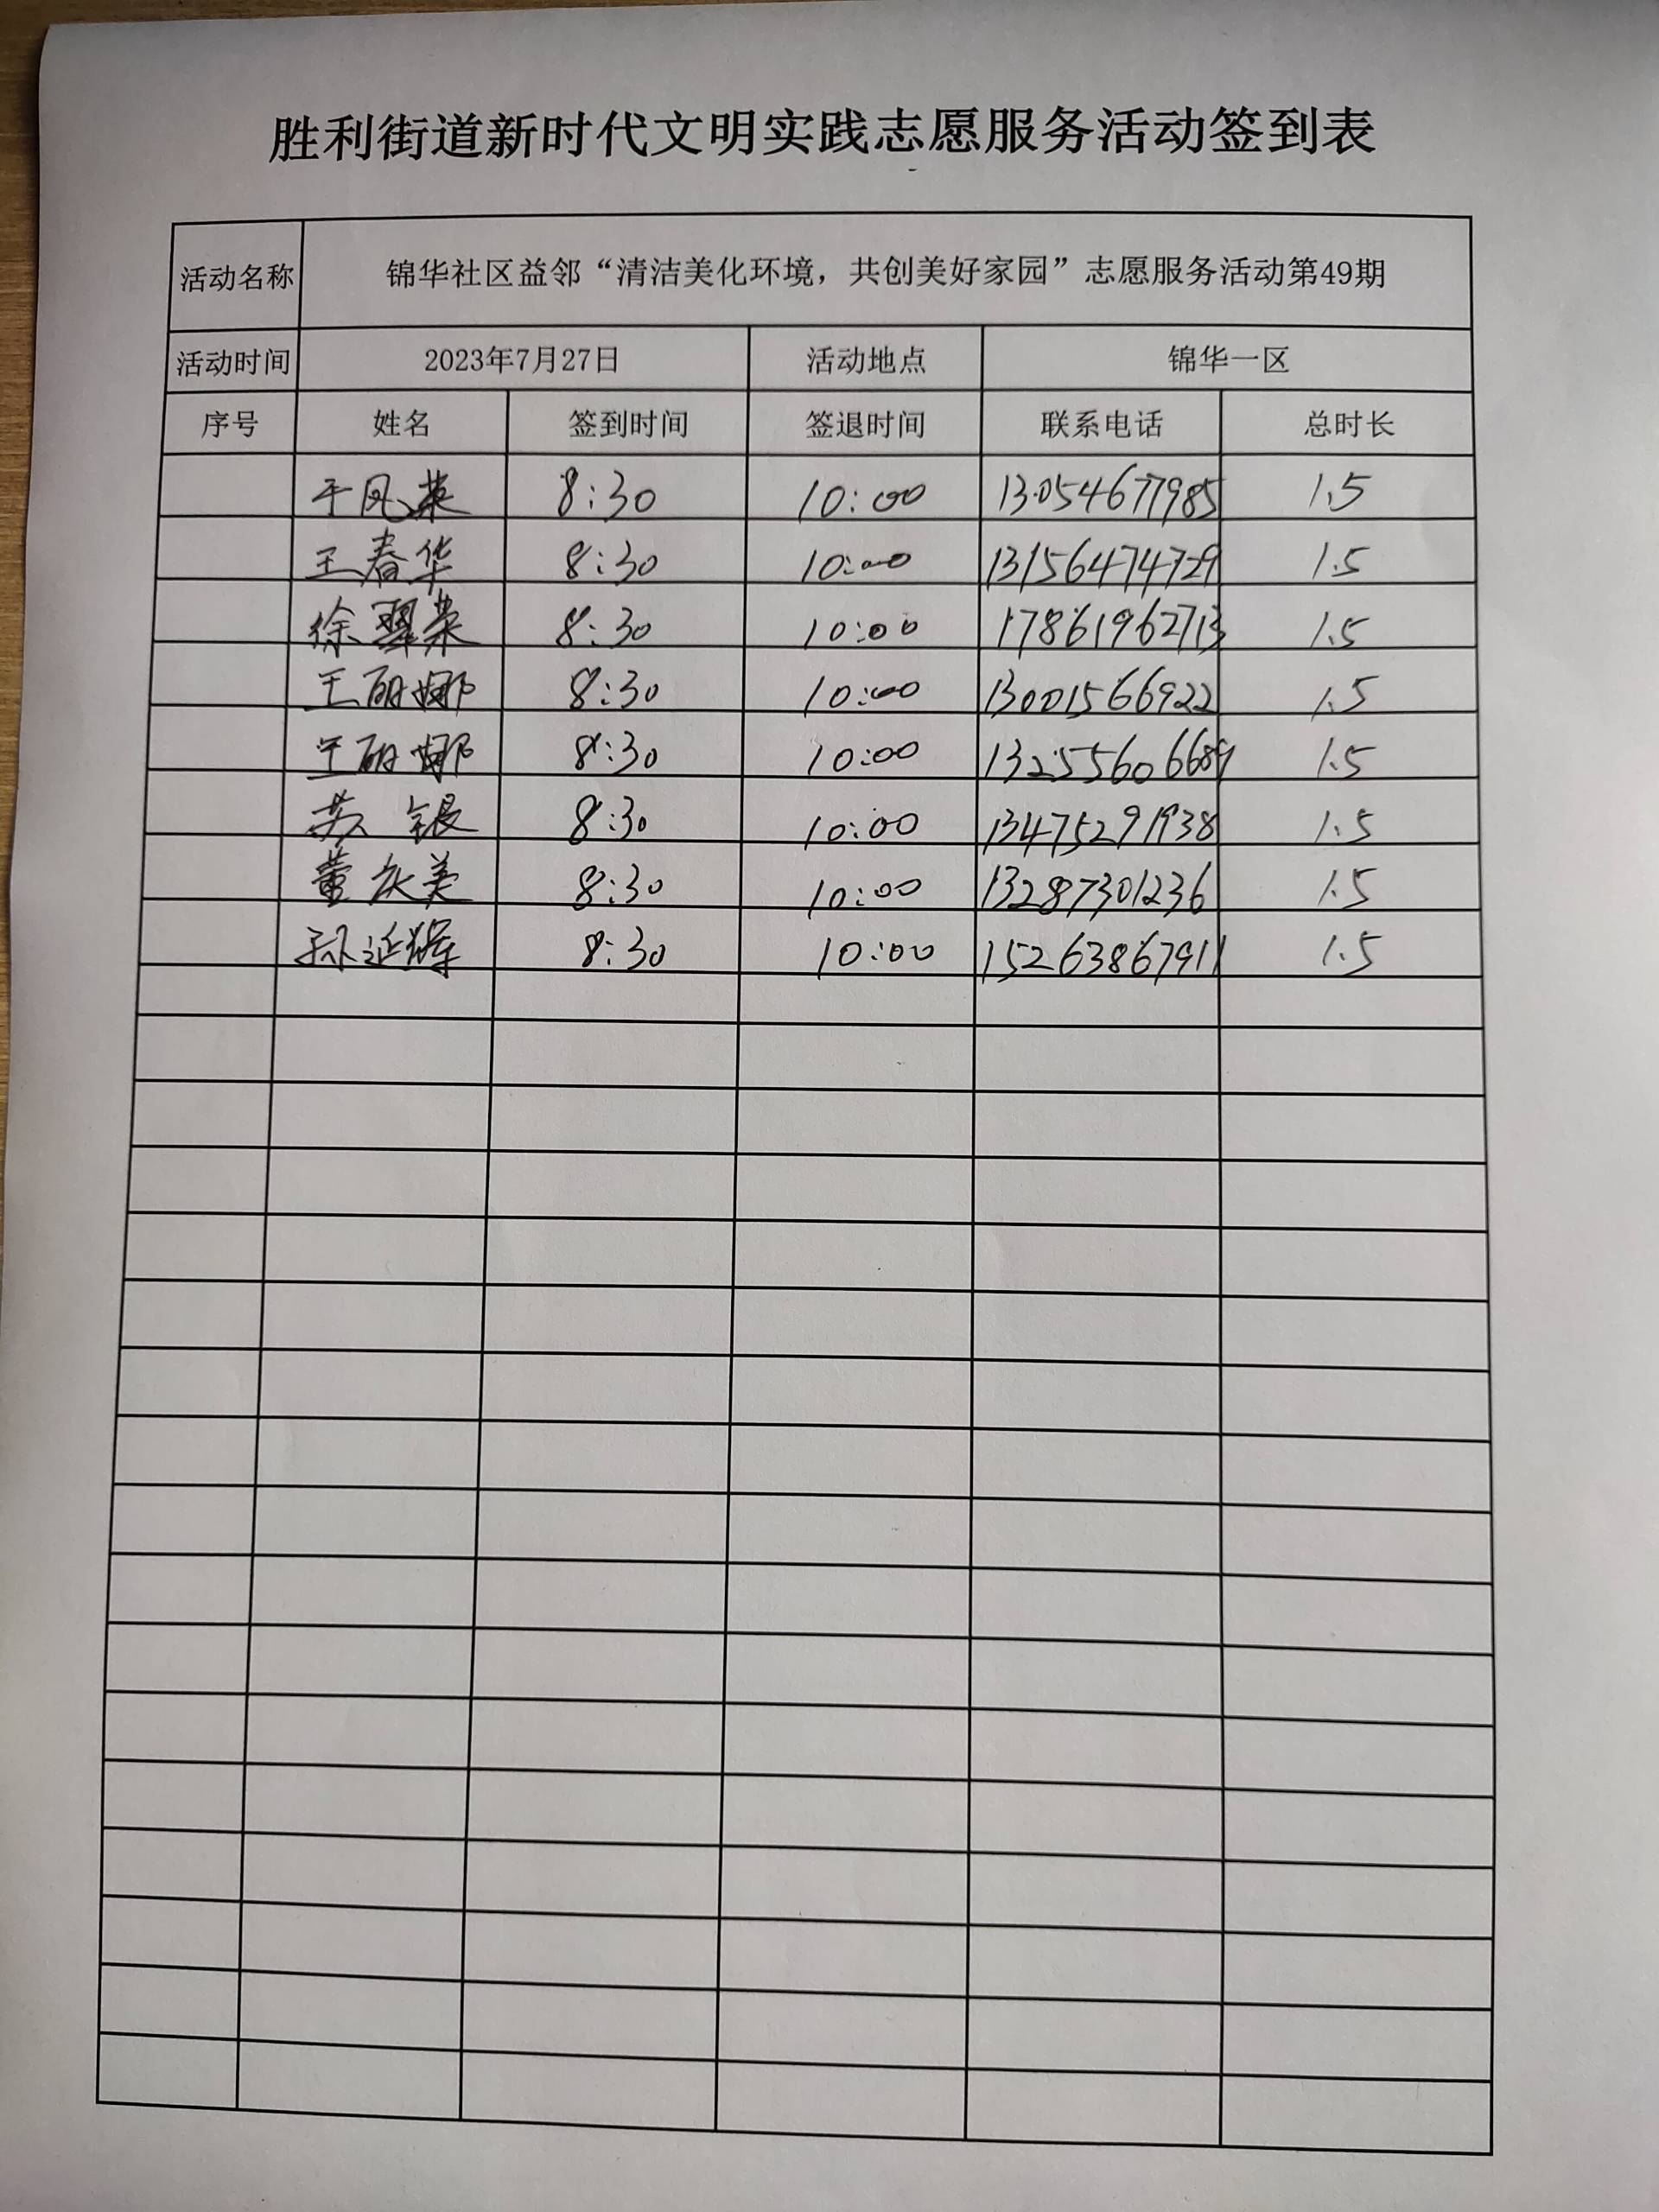 胜利街道新时代文明实践志愿服务活动签到表
活动名称 锦华社区益邻“清洁美化环境，共创美好家园”志愿服务活动第49期
活动时间 2023年7月27日 活动地点 锦华一区
序号 姓名 签到时间 签退时间 联系电话 总时长
于凤英 8:30 10:00 13054677985 1.5
王春华 8:30 10:00 13156474729 1.5
徐翠荣 8:30 10:00 17861962713 1.5
王丽娜 8:30 10:00 13001566922 1.5
王丽娜 8:30 10:00 13255606689 1.5
苏银 8:30 10:00 13475291938 1.5
董庆美 8:30 10:00 13287301236 1.5
孙延辉 8:30 10:00 15263867911 1.5